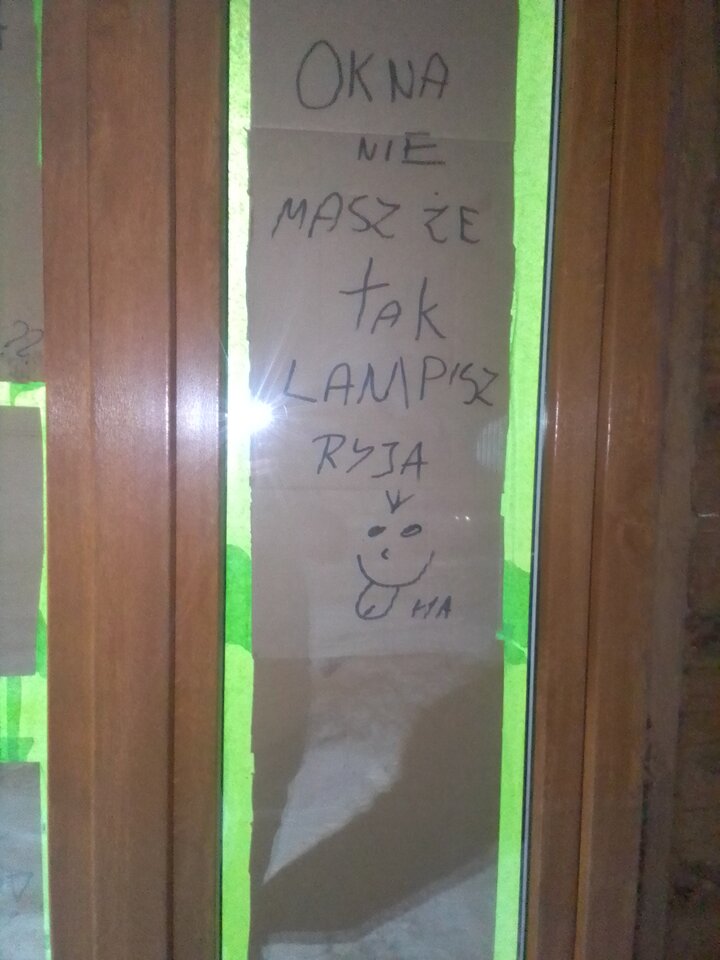 OKNA
NIE
MASZ ŻE
tAK
LAMPISZ
RYJA
HA
??